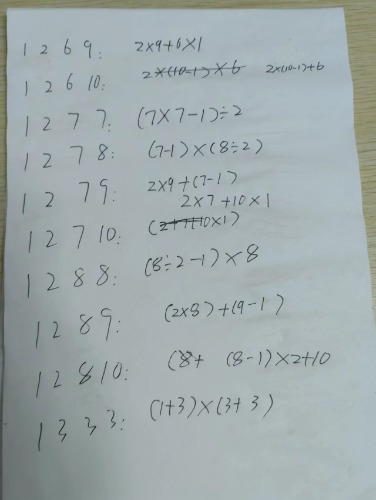 1 2 6 9: 2×9+6×1
1 2 6 10: 2×(10-1)×6 2×(10-1)+6
1 2 7 7: (7×7-1)÷2
1 2 7 8: (7-1)×(8÷2)
1 2 7 9: 2×9+(7-1)
2×7+10×1
1 2 7 10: (2+7+10×1)
1 2 8 8: (8÷2-1)×8
1 2 8 9: (2×8)+(9-1)
1 2 8 10: (8+ (8-1)×2+10
1 3 3 3: (1+3)×(3+3)